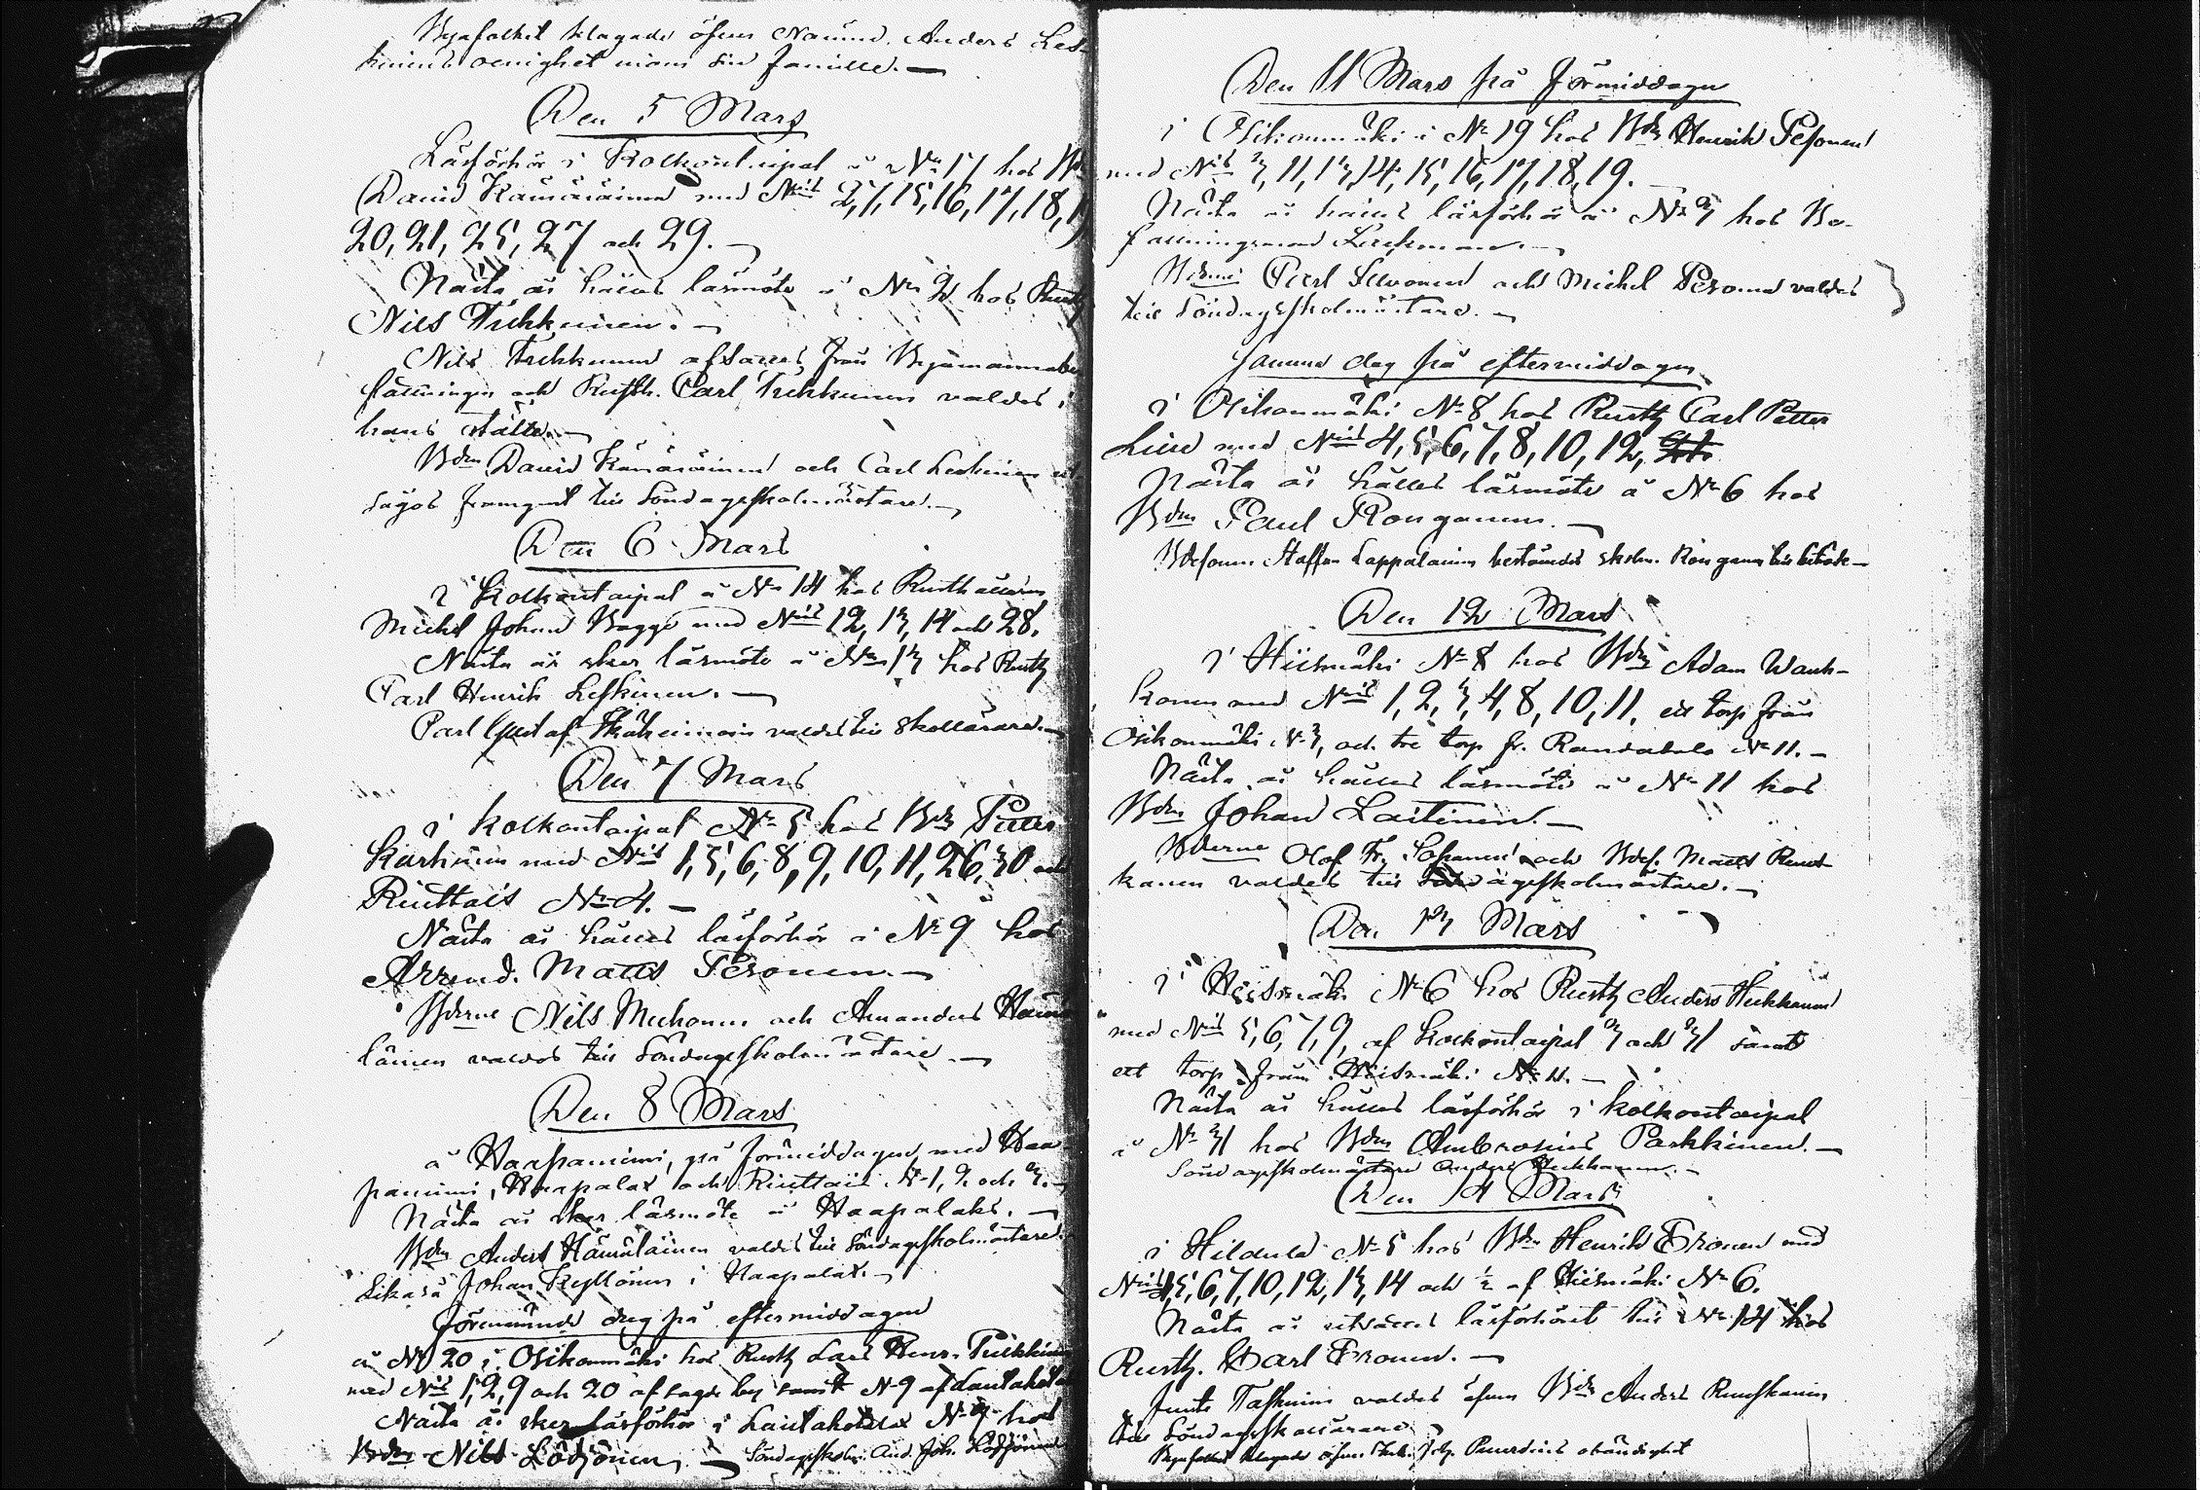 Byafolket klagade öfver Anders Les-
kinens oenighet inom sin familie. —
Den 5 Mars
Läsförhör i Kolkontaipal å No 17 hos Bdn
David Kämäräinen med Nris 2, 7, 15, 16, 17, 18, 19
20, 21, 25, 27 och 29. —
Nästa år hålles läsmöte å No 2 hos Rusth
Nils Tirkkunen. —
Nils Tirkkunen afsades från Byamannabe-
fattningen och Rusth. Carl Tirkkunen valdes i
hans ställe. —
Bdn David Kämäräinen och Carl Leskinen
sågos framgent till Söndagsskolmästare. —
Den 6 Mars
i Kolkontaipal å No 14 hos Rusthållaren
Michel Johan Bagge med Nris 12, 13, 14 och 28.
Nästa år sker läsmöte å No 13 hos Rusth
Carl Henrik Leskinen. —
Carl Gustaf valdes till skollärare. —
Den 7 Mars
i Kolkontaipal No 5 hos Bdn Petter
Karhunen med Nris 1, 5, 6, 8, 9, 10, 11, 26, 30 och
Riuttais No 4. —
Nästa år hålles läsförhör å No 9 hos
Arrend. Matts Pesonen. —
Bderne Nils och Amandus Hämä-
läinen valdes till Söndagsskolmästare. —
Den 8 Mars
å Haapaniemi, på förmiddagen med Haa-
paniemi, Haapalax och Riuttais No 1, 2 och 3. —
Nästa år sker läsmöte å Haapalaks. —
Bdn Anders Hämäläinen valdes till Söndagsskolmästare
likaså Johan Kyllönen i Haapalax. —
Förenämnde dag på eftermiddagen
å No 20 i Osikonmäki hos Rusth Lars Henr. Tirkkunen
med Nris 1, 2, 9 och 20 af sagde by samt No 9 af Lautakotalo
Nästa år sker läsförhör i Lautakotalo No 9 hos
Bdn Nils Lötjönen. — Söndagsskolm. And. Joh. Lötjönen
Den 11 Mars på förmiddagen
i Osikonmäki å No 19 hos Bdn Henrik Pesonen
med Nris 3, 11, 13, 14, 15, 16, 17, 18, 19.
Nästa år hålles läsförhör å No 3 hos Be-
fallningsman —
Bdne Carl och Michel Pesonen valdes
till Söndagsskolmästare. —
Samma dag på eftermiddagen
i Osikonmäki No 8 hos Rusth Carl Petter
med Nris 4, 5, 6, 7, 8, 10, 12,
Nästa år hålles läsmöte å No 6 hos
Bdn Paul Ronganen. —
Bdesonen Staffan Lappalainen skolm. Ronganen —
Den 12 Mars
i Hiismäki No 8 hos Bdn Adam Wauh-
konen med Nris 1, 2, 3, 4, 8, 10, 11, ett torp från
Osikonmäki No 3, och tre torp fr. Randatalo No 11. —
Nästa år hålles läsmöte å No 11 hos
Bdn Johan Laitinen. —
Bderne Olof Fr. och Bdes. Matts Ruus-
kanen valdes till Söndagsskolmästare. —
Den 13 Mars
i Hiismäki No 6 hos Rusth Anders Hukkanen
med Nris 5, 6, 7, 9, af Kolkontaipal 3 och 31 samt
ett torp från Hiismäki No 11. —
Nästa år hålles läsförhör i Kolkontaipal
å No 31 hos Bdn Ambrosius Parkkinen. —
Söndagsskolmästare Anders Hukkanen. —
Den 14 Mars
i Hildula No 5 hos Bdn Henrik Eronen med
Nris 1, 5, 6, 7, 10, 12, 13, 14 och ½ af Hiismäki No 6.
Nästa år utsattes läsförhöret till No 14 hos
Rusth. Carl Eronen. —
valdes Bdn Anders Ruuskanen
till Söndagsskollärare. —
Byafolket klagade öfver